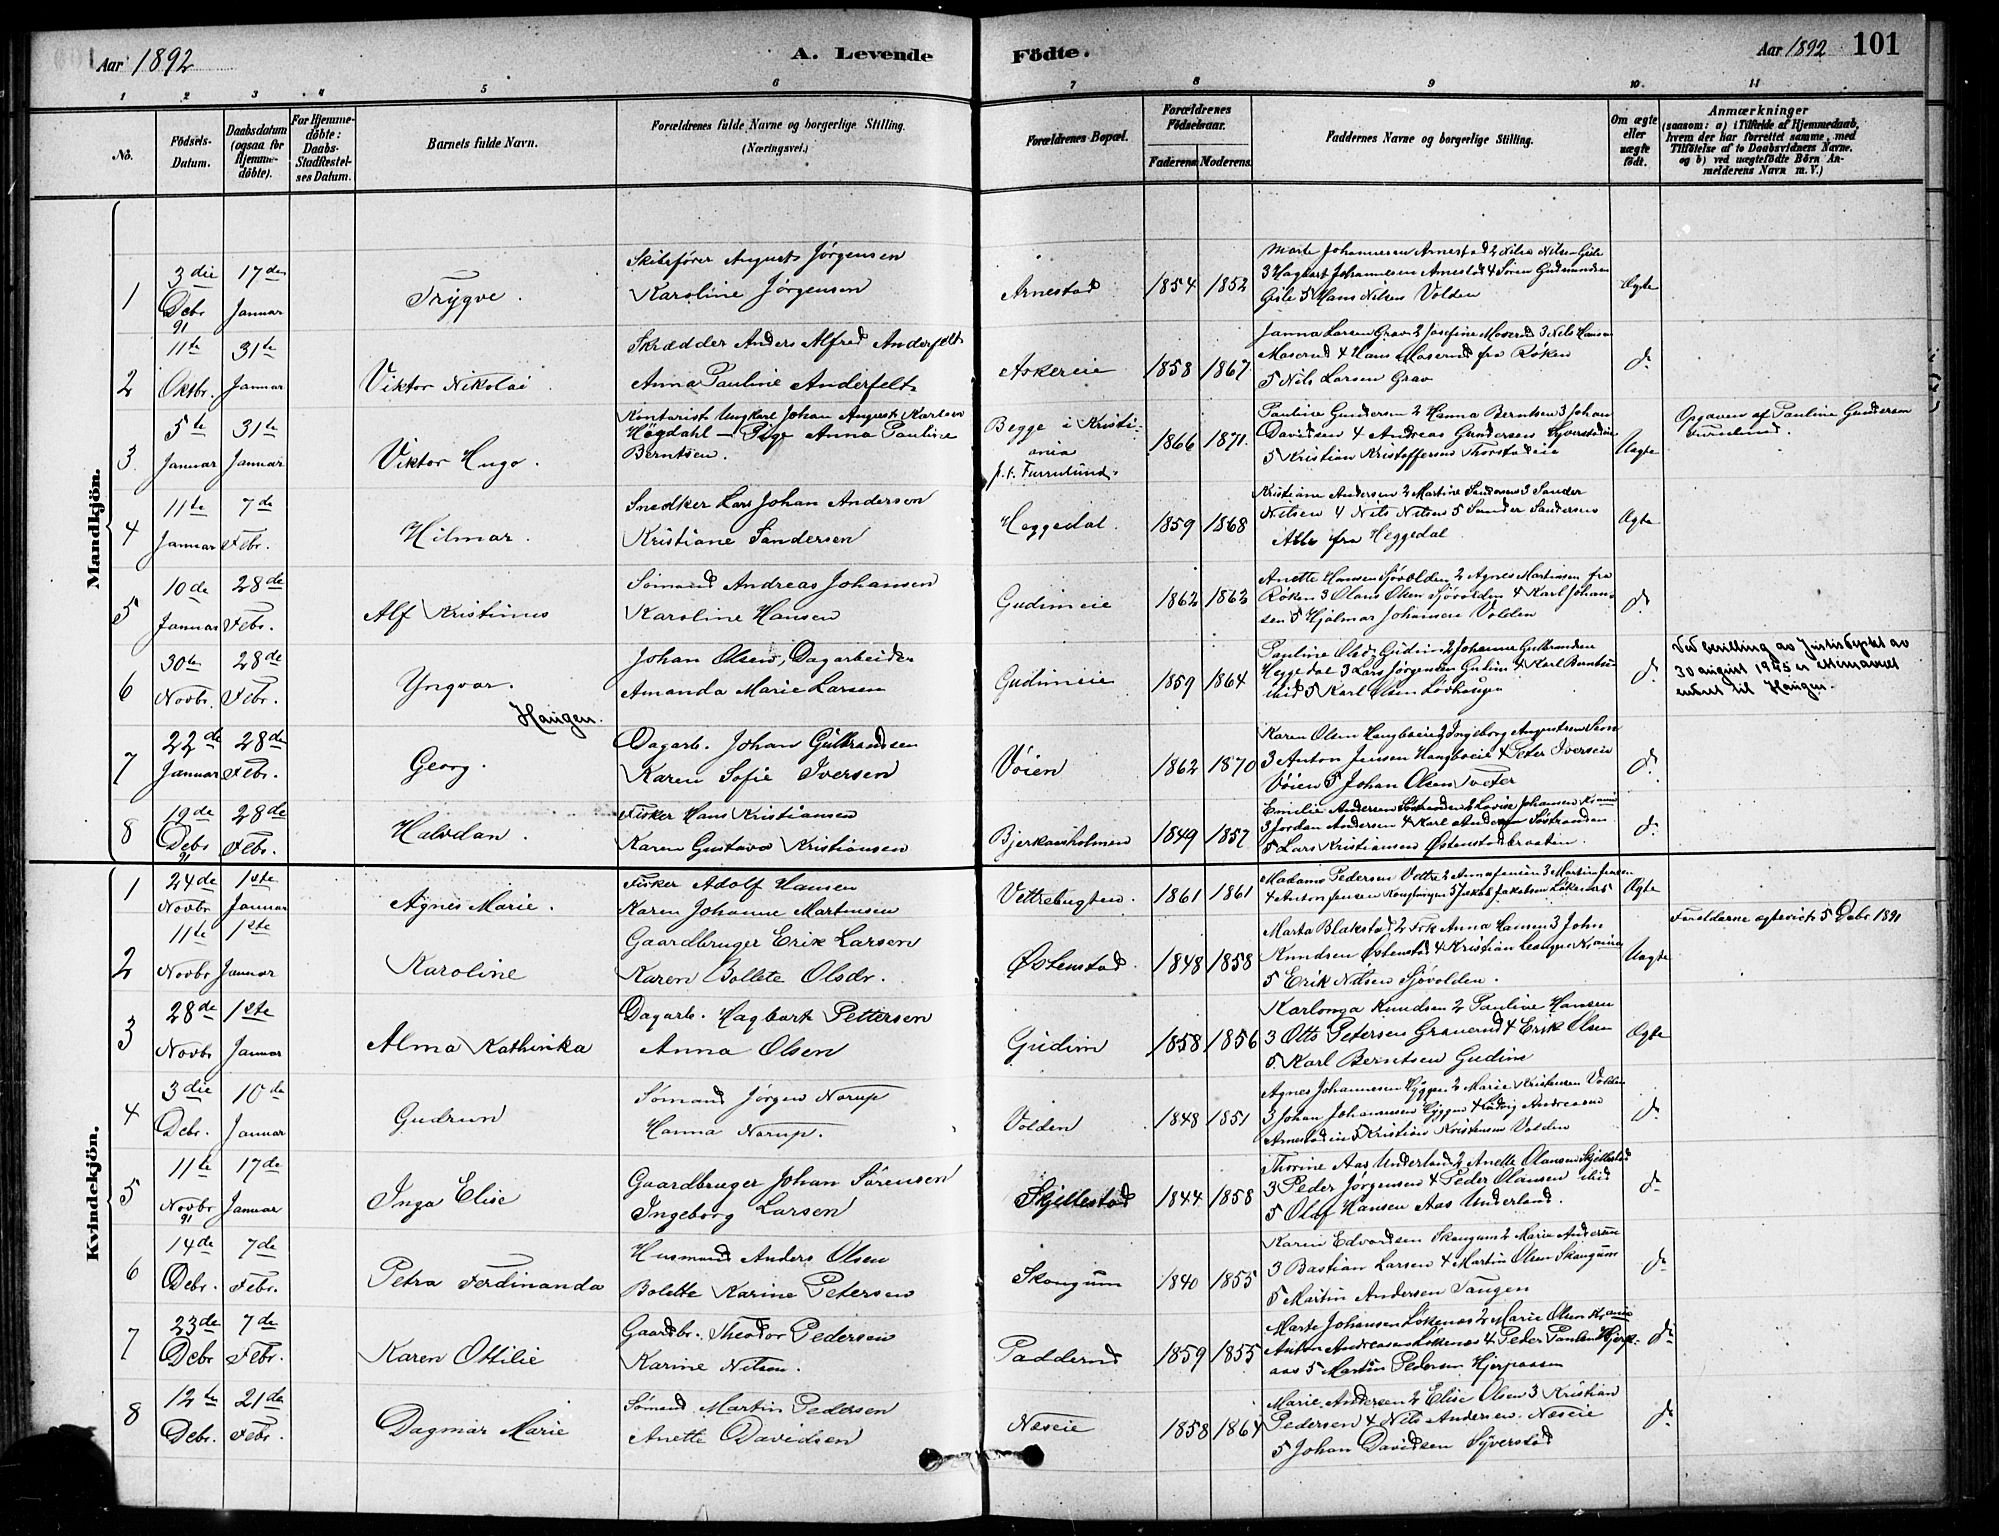 Aar 1892
A. Levende
Födte.
Aar 1892 101
1 2 3 4 5 6 7 8 9 10 11
No.
Födsels-Datum.
Daabsdatum (ogsaa for Hjemmedöbte).
For Hjemmedöbte: Daabs-Stadfæstelses Datum.
Barnets fulde Navn.
Forældrenes fulde Navne og borgerlige Stilling.
(Næringsvei.)
Forældrenes Bopæl.
Forældrenes Födselsaar.
Faderens. Moderens.
Faddernes Navne og borgerlige Stilling.
Om ægte eller uægte födt.
Anmærkninger
(saasom: a) i Tilfælde af Hjemmedaab,
hvem der har forrettet samme, med
Tilföielse af to Daabsvidners Navne,
og b) ved uægtefödte Börn Anmelderens Navn m. V.)
Mandkjön.
1 3die Debr 91 17de Januar Trygve.
Skibsfører August Jørgensen
Karoline Jørgensen
Arnestad 1854 1852
Marte Johannesen Arnestad 2 Nilia Nilsen Gisle
3 Hagbart Johannesen Arnestad 4 Søren Gudmundsen
Gisle 5 Hans Nilsen Volden
Ægte
2 11te Oktbr. 31te Januar Viktor Nikolai
Skrædder Anders Alfred Anderfelt
Anna Pauline Anderfelt
Askereie 1858 1867
Janna Larsen Grav 2 Josefine Moserud 3 Nils Hansen
Moserud 4 Hans Moserud fra Røken
5 Nils Larsen Grav
do
3. 5te Januar 31te Januar Viktor Hugo.
Kontorist Ungkarl Johan August Karlsen
Høgdahl — Pige Anna Pauline
Berntsen.
Begge i Kristiania
p.t. Furulund
1866 1871
Pauline Gundersen 2 Hanna Berntsen 3 Johan
Davidsen 4 Andreas Gundersen Syverstadeie
5 Kristian Kristoffersen Thorstadeie
Uægte
Opgaven af Pauline Gundersen
Furulund.
4 11te Januar 7de Febr. Hilmar.
Snedker Lars Johan Andersen
Kristiane Sandersen
Heggedal. 1859 1868
Kristiane Andersen 2 Martine Sandersen 3 Sander
Nilsen 4 Nils Nilsen 5 Sander Sandersen
Alle fra Heggedal
Ægte
5 10de Januar 28de Febr. Alf Kristinus
Sømand Andreas Johansen
Karoline Hansen
Gudimeie 1862 1862
Anette Hansen Sjøvolden 2 Agnes Martinsen fra
Røken 3 Olaus Olsen Sjøvolden 4 Karl Johansen
5 Hjalmar Johansen Volden
do
6 30te Novbr. 28de Febr. Yngvar.
Haugen.
Johan Olsen, Dagarbeider
Amanda Marie Larsen
Gudimeie 1859 1864
Pauline Olsdr Gudim 2 Johanne Gulbrandsen
Heggedal 3 Lars Jørgensen Gudim 4 Karl Berntsen
ibid 5 Karl Olsen Løvhaugen
do
Ved bevilling av Justisdeptet av
30 august 1925 er etternavnet
endret til Haugen.
7 22de Januar 28de Febr. Georg.
Dagarb. Johan Gulbrandsen
Karen Sofie Iversen
Vøien 1862 1870
Karen Olsen Haugboeie 2 Ingeborg Augustsen Sem
3 Anton Jensen Haugboeie 4 Peter Iversen
Vøien 5 Johan Olsen Tveter
do
8 19de Debr 91 28de Febr. Halvdan.
Fisker Hans Kristiansen
Karen Gustava Kristiansen
Bjerkaasholmen 1849 1857
Emilie Andersen Søstranden 2 Lovise Johansen Kr.ania
3 Jordan Andersen 4 Karl Andersen Søstranden
5 Lars Kristiansen Østenstadbraaten
do
Kvindekjön.
1 24de Novbr 1ste Januar Agnes Marie.
Fisker Adolf Hansen
Karen Johanne Martinsen
Vettrebugten. 1861 1861
Madam Pedersen Vettre 2 Anna Jensen 3 Martin Jensen
4 Anton Jensen 5 Jakob Jakobsen Løkenes
Ægte
2 11te Novbr 1ste Januar Karoline
Gaardbruger Erik Larsen
Karen Bollette Olsdr.
Østenstad. 1848 1858
Marta Blakstad 2 Frk Anna Hansen 3 John
Knudsen Østenstad 4 Kristian Kr.ania
5 Erik Nilsen Sjøvolden.
Uægte
Forældrene egteviet 5 Debr 1891
3 28de Novbr 1ste Januar Alma Kathinka
Dagarb. Hagbart Pettersen
Anna Olsen
Gudim 1858 1856
Karlonga Knudsen 2 Pauline Hansen
3 Otto Petersen Graverud 4 Erik Olsen
5 Karl Berntsen Gudim
Ægte
4 3die Debr. 10de Januar Gudrun
Sømand Jørgen Norup
Hanna Norup.
Volden 1848 1851
Agnes Johannesen Hyggen 2 Marie Kristensen Volden
3 Johan Johannesen Hyggen 4 Ludvig Andreasen
Arnestadeie 5 Kristian Kristensen Volden
do
5 11te Novbr 91 17de Januar Inga Elise
Gaardbruger Johan Sørensen
Ingeborg Larsen
Skjellestad 1844 1858
Thorine Aas Underland 2 Anette Olausen Skjellestad
3 Peder Jørgensen 4 Peder Olausen ibid
5 Olaf Hansen Aas Underland.
do
6 14de Debr. 7de Febr. Petra Ferdinanda
Husmand Anders Olsen
Bolette Karine Petersen
Skougum 1840 1855
Karin Edvardsen Skougum 2 Marie Andersen
3 Bastian Larsen 4 Martin Olsen Skougum
5 Martin Andersen Tangen
do
7 23de Debr 7de Febr. Karen Ottilie
Gaardbr. Theodor Pedersen
Karine Nilsen.
Padderud 1859 1855
Marte Johansen Løkenes 2 Marie Olsen Kr.ania
Anton Andreasen Løkenes 4 Peder Paulsen Hjerpaas
5 Martin Pedersen Hjerpaasen
do
8 12te Debr. 21de Febr. Dagmar Marie
Sømand Martin Pedersen
Anette Davidsen
Neseie 1858 1864
Marie Andersen 2 Elise Olsen 3 Kristian
Pedersen 4 Nils Andersen Neseie
5 Johan Davidsen Syverstad
do